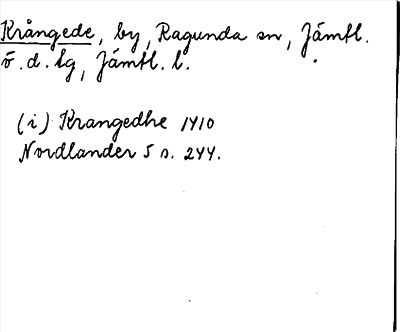 Krångede, by, Ragunda sn, Jämtl.
ö. d. tg, Jämtl. l.
(i) Krangedhe 1410
Nordlander 5 s. 244.